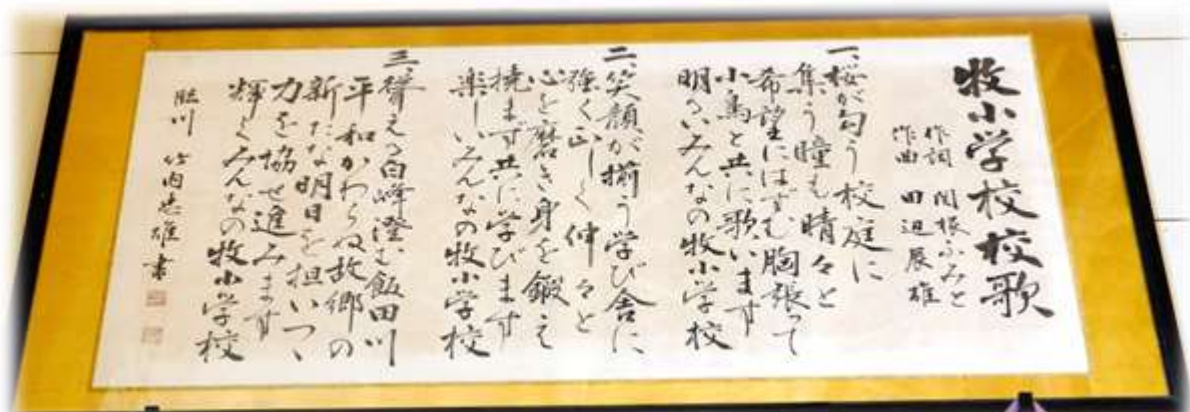 牧小学校校歌
作詞 関根ふみと
作曲 田辺展雄
一、桜が匂う校庭に
集う瞳も晴々と
希望にはずむ胸張って
小鳥と共に歌います
明るいみんなの牧小学校
二、笑顔が揃う学び舎に
強く正しく伸々と
心を磨き身を鍛え
撓まず共に学びます
楽しいみんなの牧小学校
三、聳える白峰澄む飯田川
平和かわらぬ故郷の
新たな明日を担いつゝ
力を協せ進みます
輝くみんなの牧小学校
竹内忠雄書